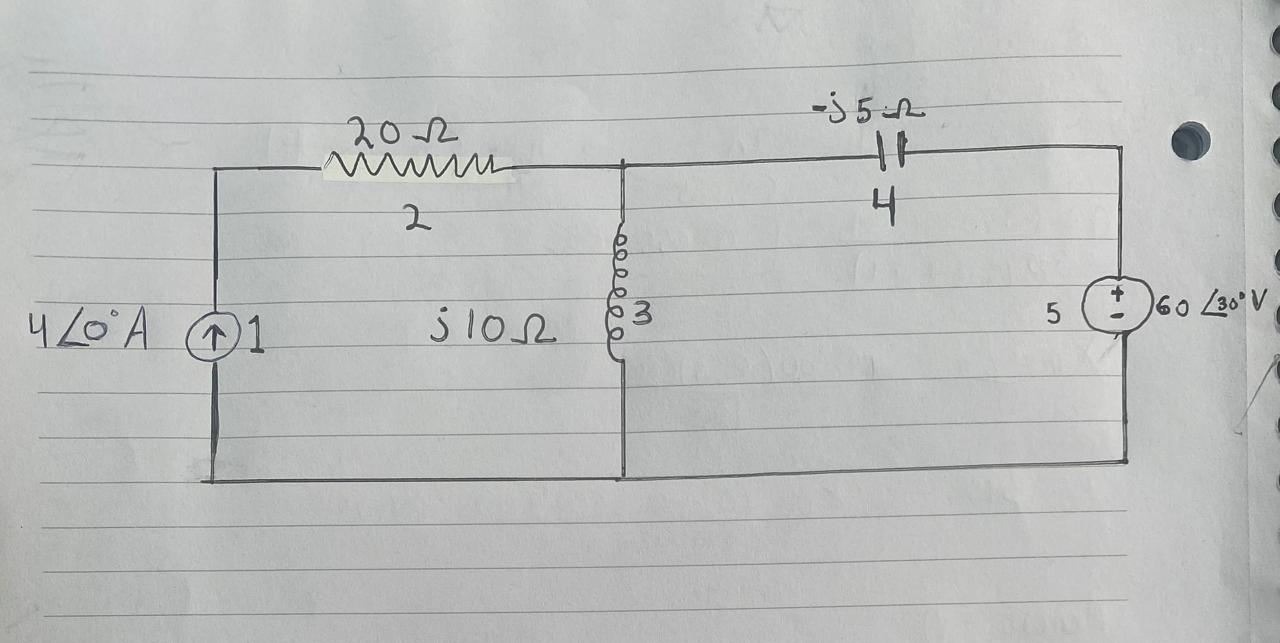 20 Ω
-j5 Ω
2
4
4∠0° A
1
j10 Ω
3
5
+
-
60 ∠30° V